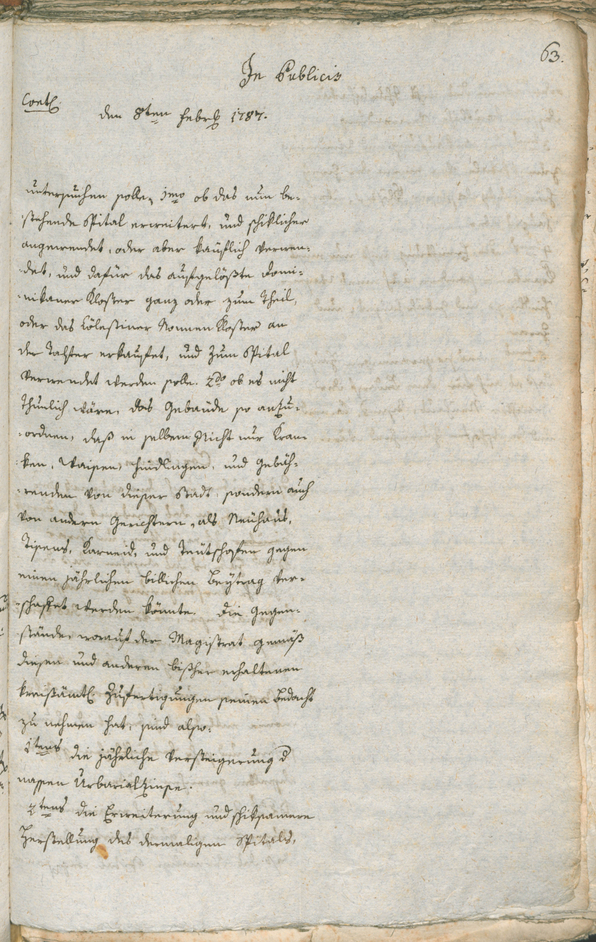 63.
In Publicis
Cont.
den 8ten Febr. 1787.
untersuchen solle, 1mo ob das nun be-
stehende Spital erweitert, und schiklicher
angewendet, oder aber käuflich verwen-
det, und dafür das aufgelößte Domi-
nikaner Kloster ganz oder zum Theil,
oder das Cölestiner Nonnen Kloster an
der Talfer erkaufet, und zum Spital
verwendet werden solle. 2do ob es nicht
thunlich wäre, das Gebäude so anzu-
ordnen, daß in selbem nicht nur Kran-
ken, Waisen, Findlingen, und Gebäh-
renden von dieser Stadt, sondern auch
von andern Gerichtern, als Neuhaus,
Karneid, und Teutschofen gegen
einen jährlichen billichen Beytrag ver-
schaffet werden könnte. Die Gegen-
stände, worauf der Magistrat gemäß
diesen und anderen bisher erhaltenen
kreisämtl. Zufertigungen seinen Bedacht
zu nehmen hat, sind also:
1tens die jährliche Versteigerung d
Urbarialzinse.
2tens die Erweiterung und schiksamere
Herstellung des dermaligen Spitals,